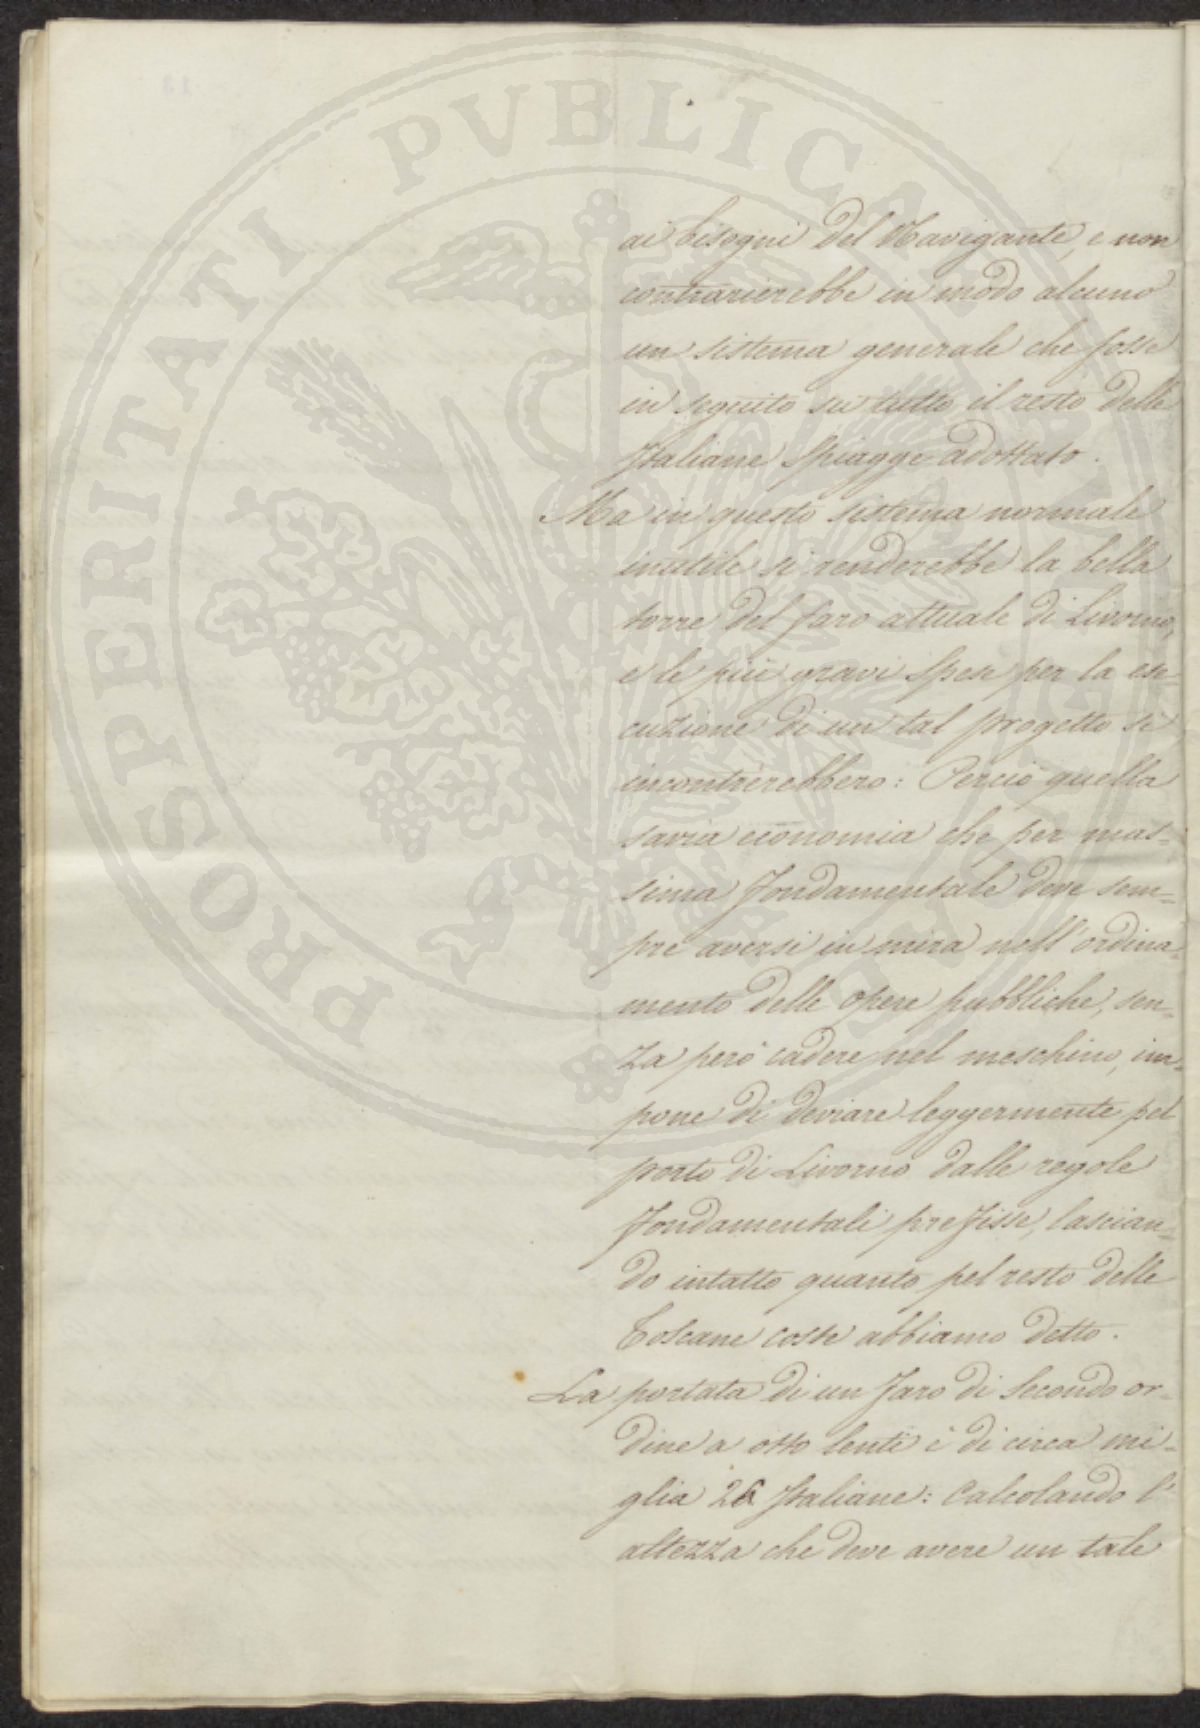 PROSPERITATI PVBLICAE
ai bisogni del Navigante, e non
contrarierebbe in modo alcuno
un sistema generale che fosse
in seguito su tutto il resto delle
Italiane Spiagge adottato.
Ma in questo sistema normale
inutile si renderebbe la bella
torre del faro attuale di Livorno,
e le più gravi spese per la ese-
cuzione di un tal progetto si
incontrerebbero: Perciò quella
savia economia che per mas-
sima fondamentale deve sem-
pre aversi in mira nell'ordina-
mento delle opere pubbliche, sen-
za però cadere nel meschino, im-
pone di deviare leggermente pel
porto di Livorno dalle regole
fondamentali prefisse, lascian-
do intatto quanto pel resto delle
Toscane coste abbiamo detto.
La portata di un Faro di Secondo or-
dine a otto lenti è di circa mi-
glia 26 Italiane: Calcolando l'
altezza che deve avere un tale